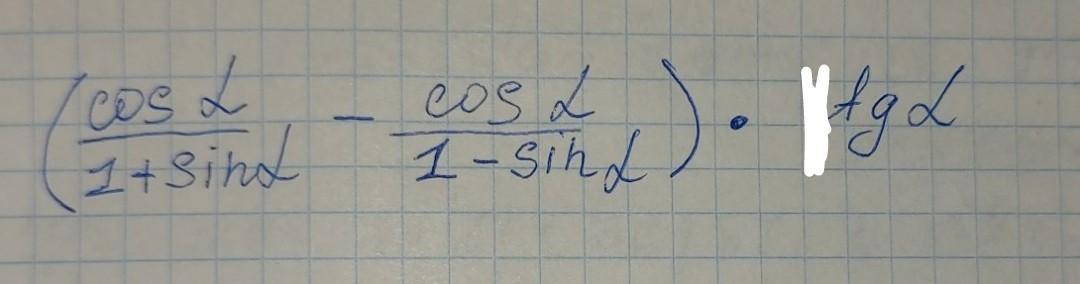 (cos α / 1+sin α − cos α / 1−sin α) · tg α